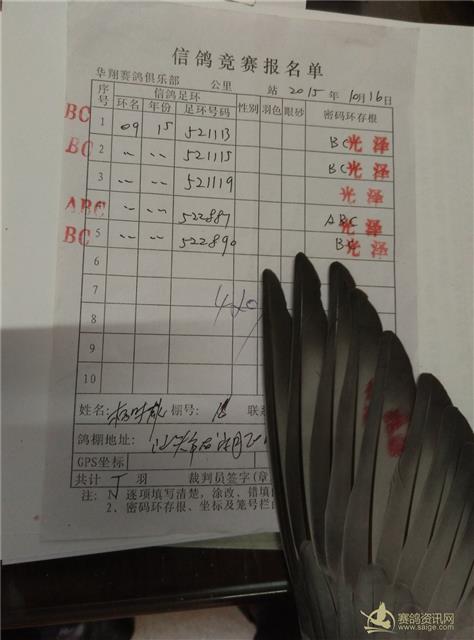 信鸽竞赛报名单
华翔赛鸽俱乐部 公里 站 2015年10月16日
序号 信鸽足环 性别 羽色 眼砂 密码环存根
环名 年份 足环号码
BC 1 09 15 521113 BC 光泽
BC 2 〃 〃 521115 BC 光泽
3 〃 〃 521119 光泽
ABC 〃 〃 522887 ABC 光泽
BC 5 〃 〃 522890 BC 光泽
6
7
8
9
10
姓名: 棚号:
鸽棚地址:
GPS坐标
共计 羽 裁判员签字(章
注: 逐项填写清楚，涂改、错填
2、密码环存根、坐标及笼号栏
赛鸽资讯网
www.saige.com